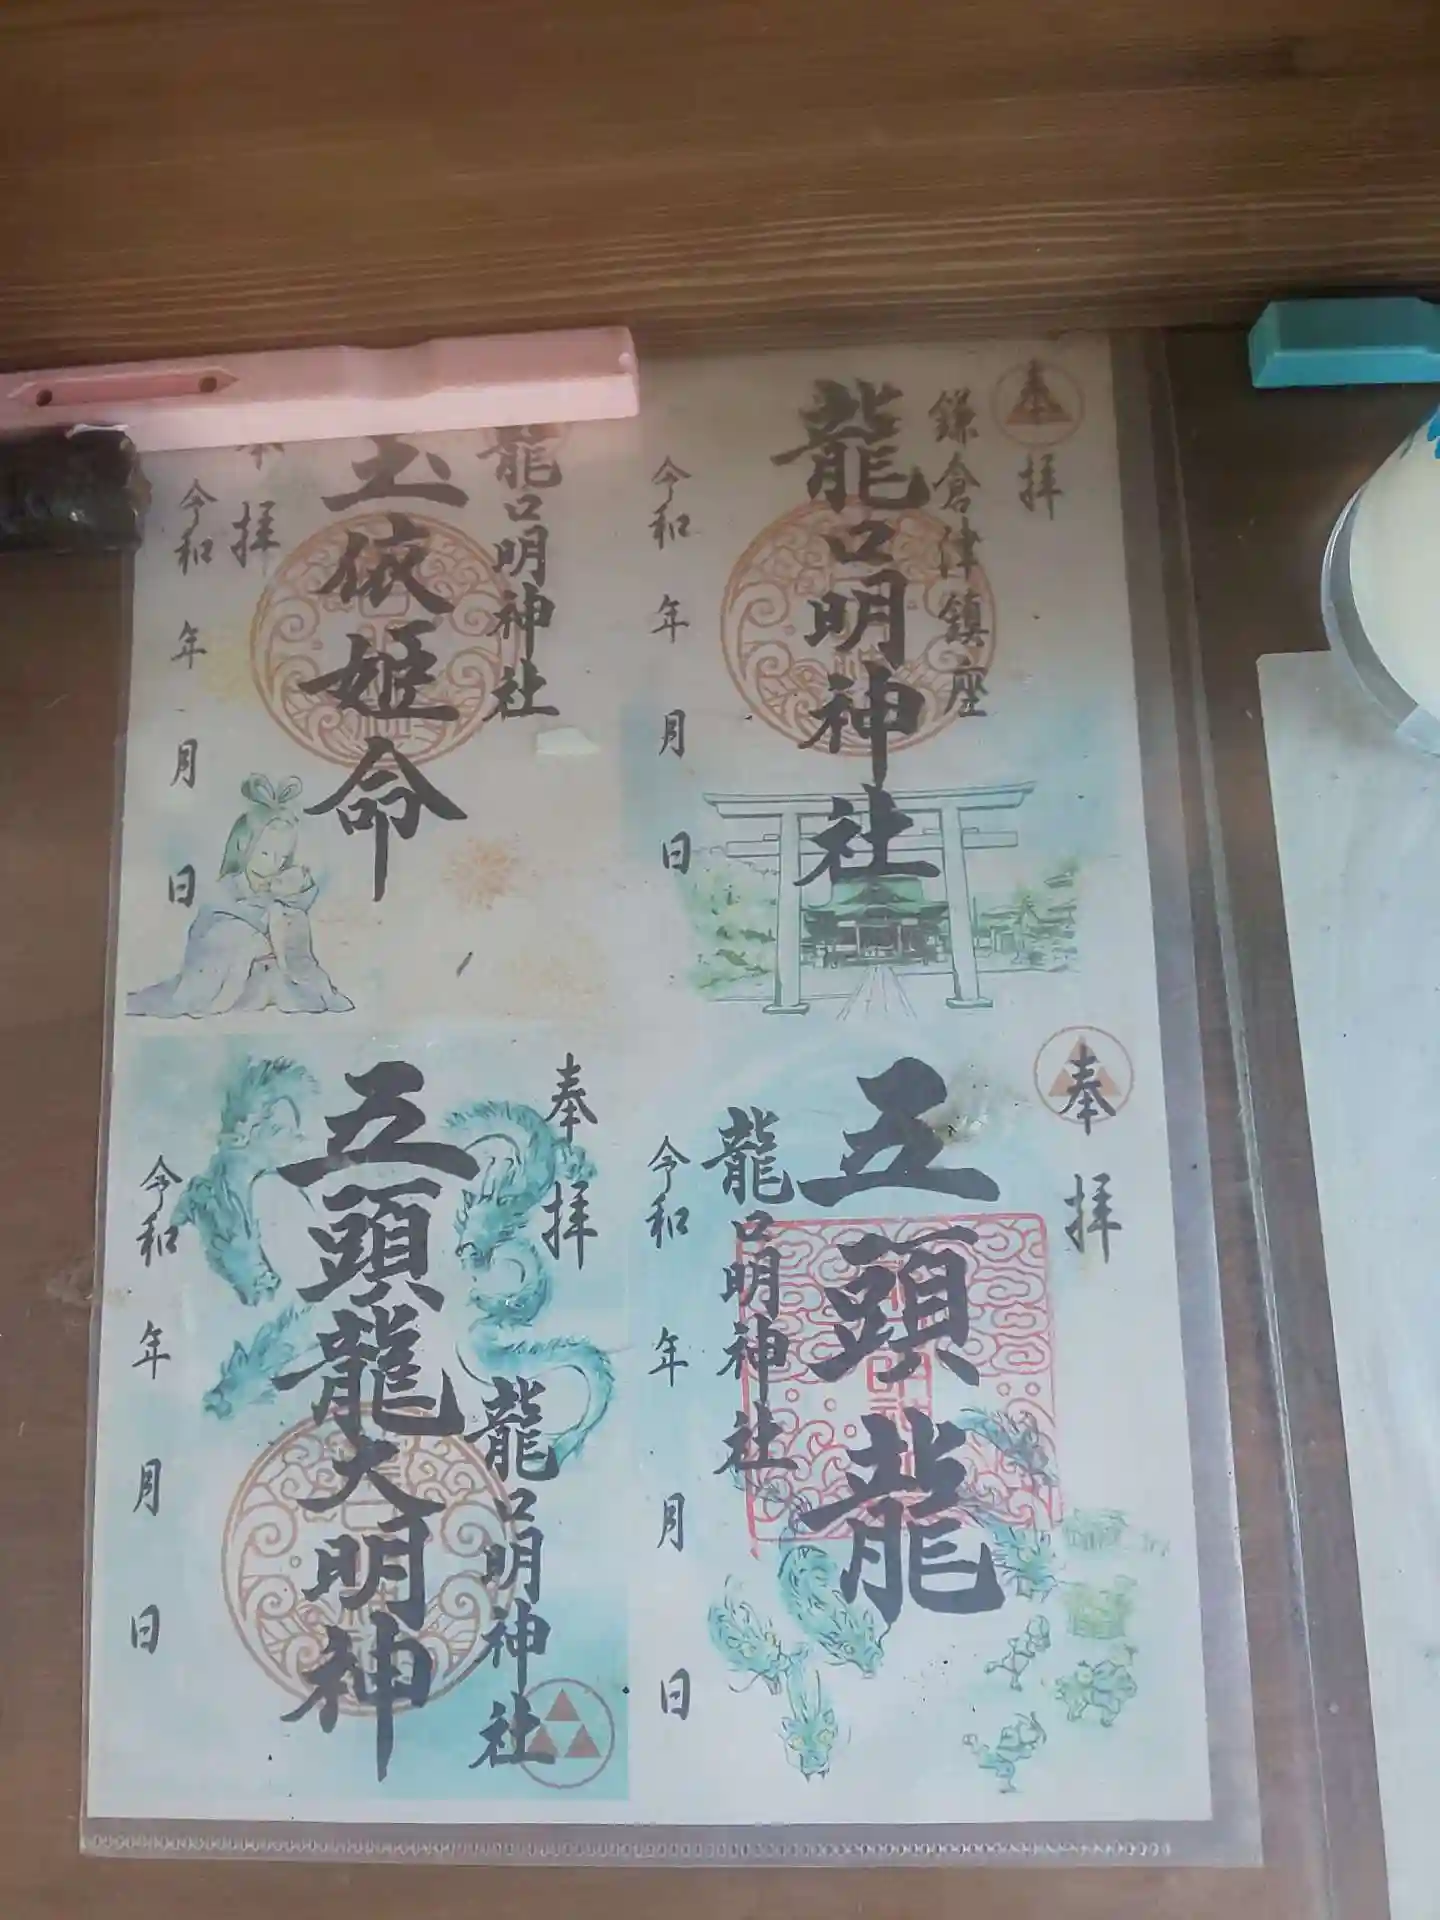 奉拝
鎌倉津鎮座
龍口明神社
令和 年 月 日
龍口明神社
玉依姫命
奉拝
令和 年 月 日
奉拝
五頭龍
龍口明神社
令和 年 月 日
奉拝
龍口明神社
五頭龍大明神
令和 年 月 日